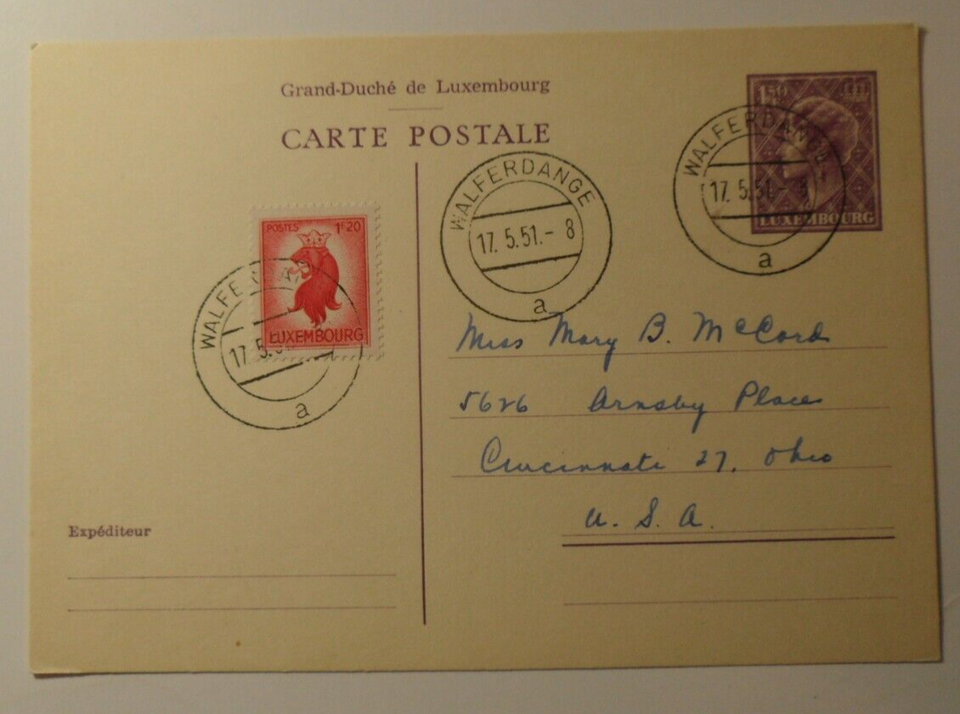 Grand-Duché de Luxembourg
CARTE POSTALE
1F50
LUXEMBOURG
WALFERDANGE
17. 5.51. - 8
a
WALFERDANGE
17. 5.51. - 8
a
POSTES 1F20
LUXEMBOURG
WALFERDANGE
17. 5.51
a
Miss Mary B. McCord
5626 Arnsby Place
Cincinnati 27, Ohio
U. S. A.
Expéditeur